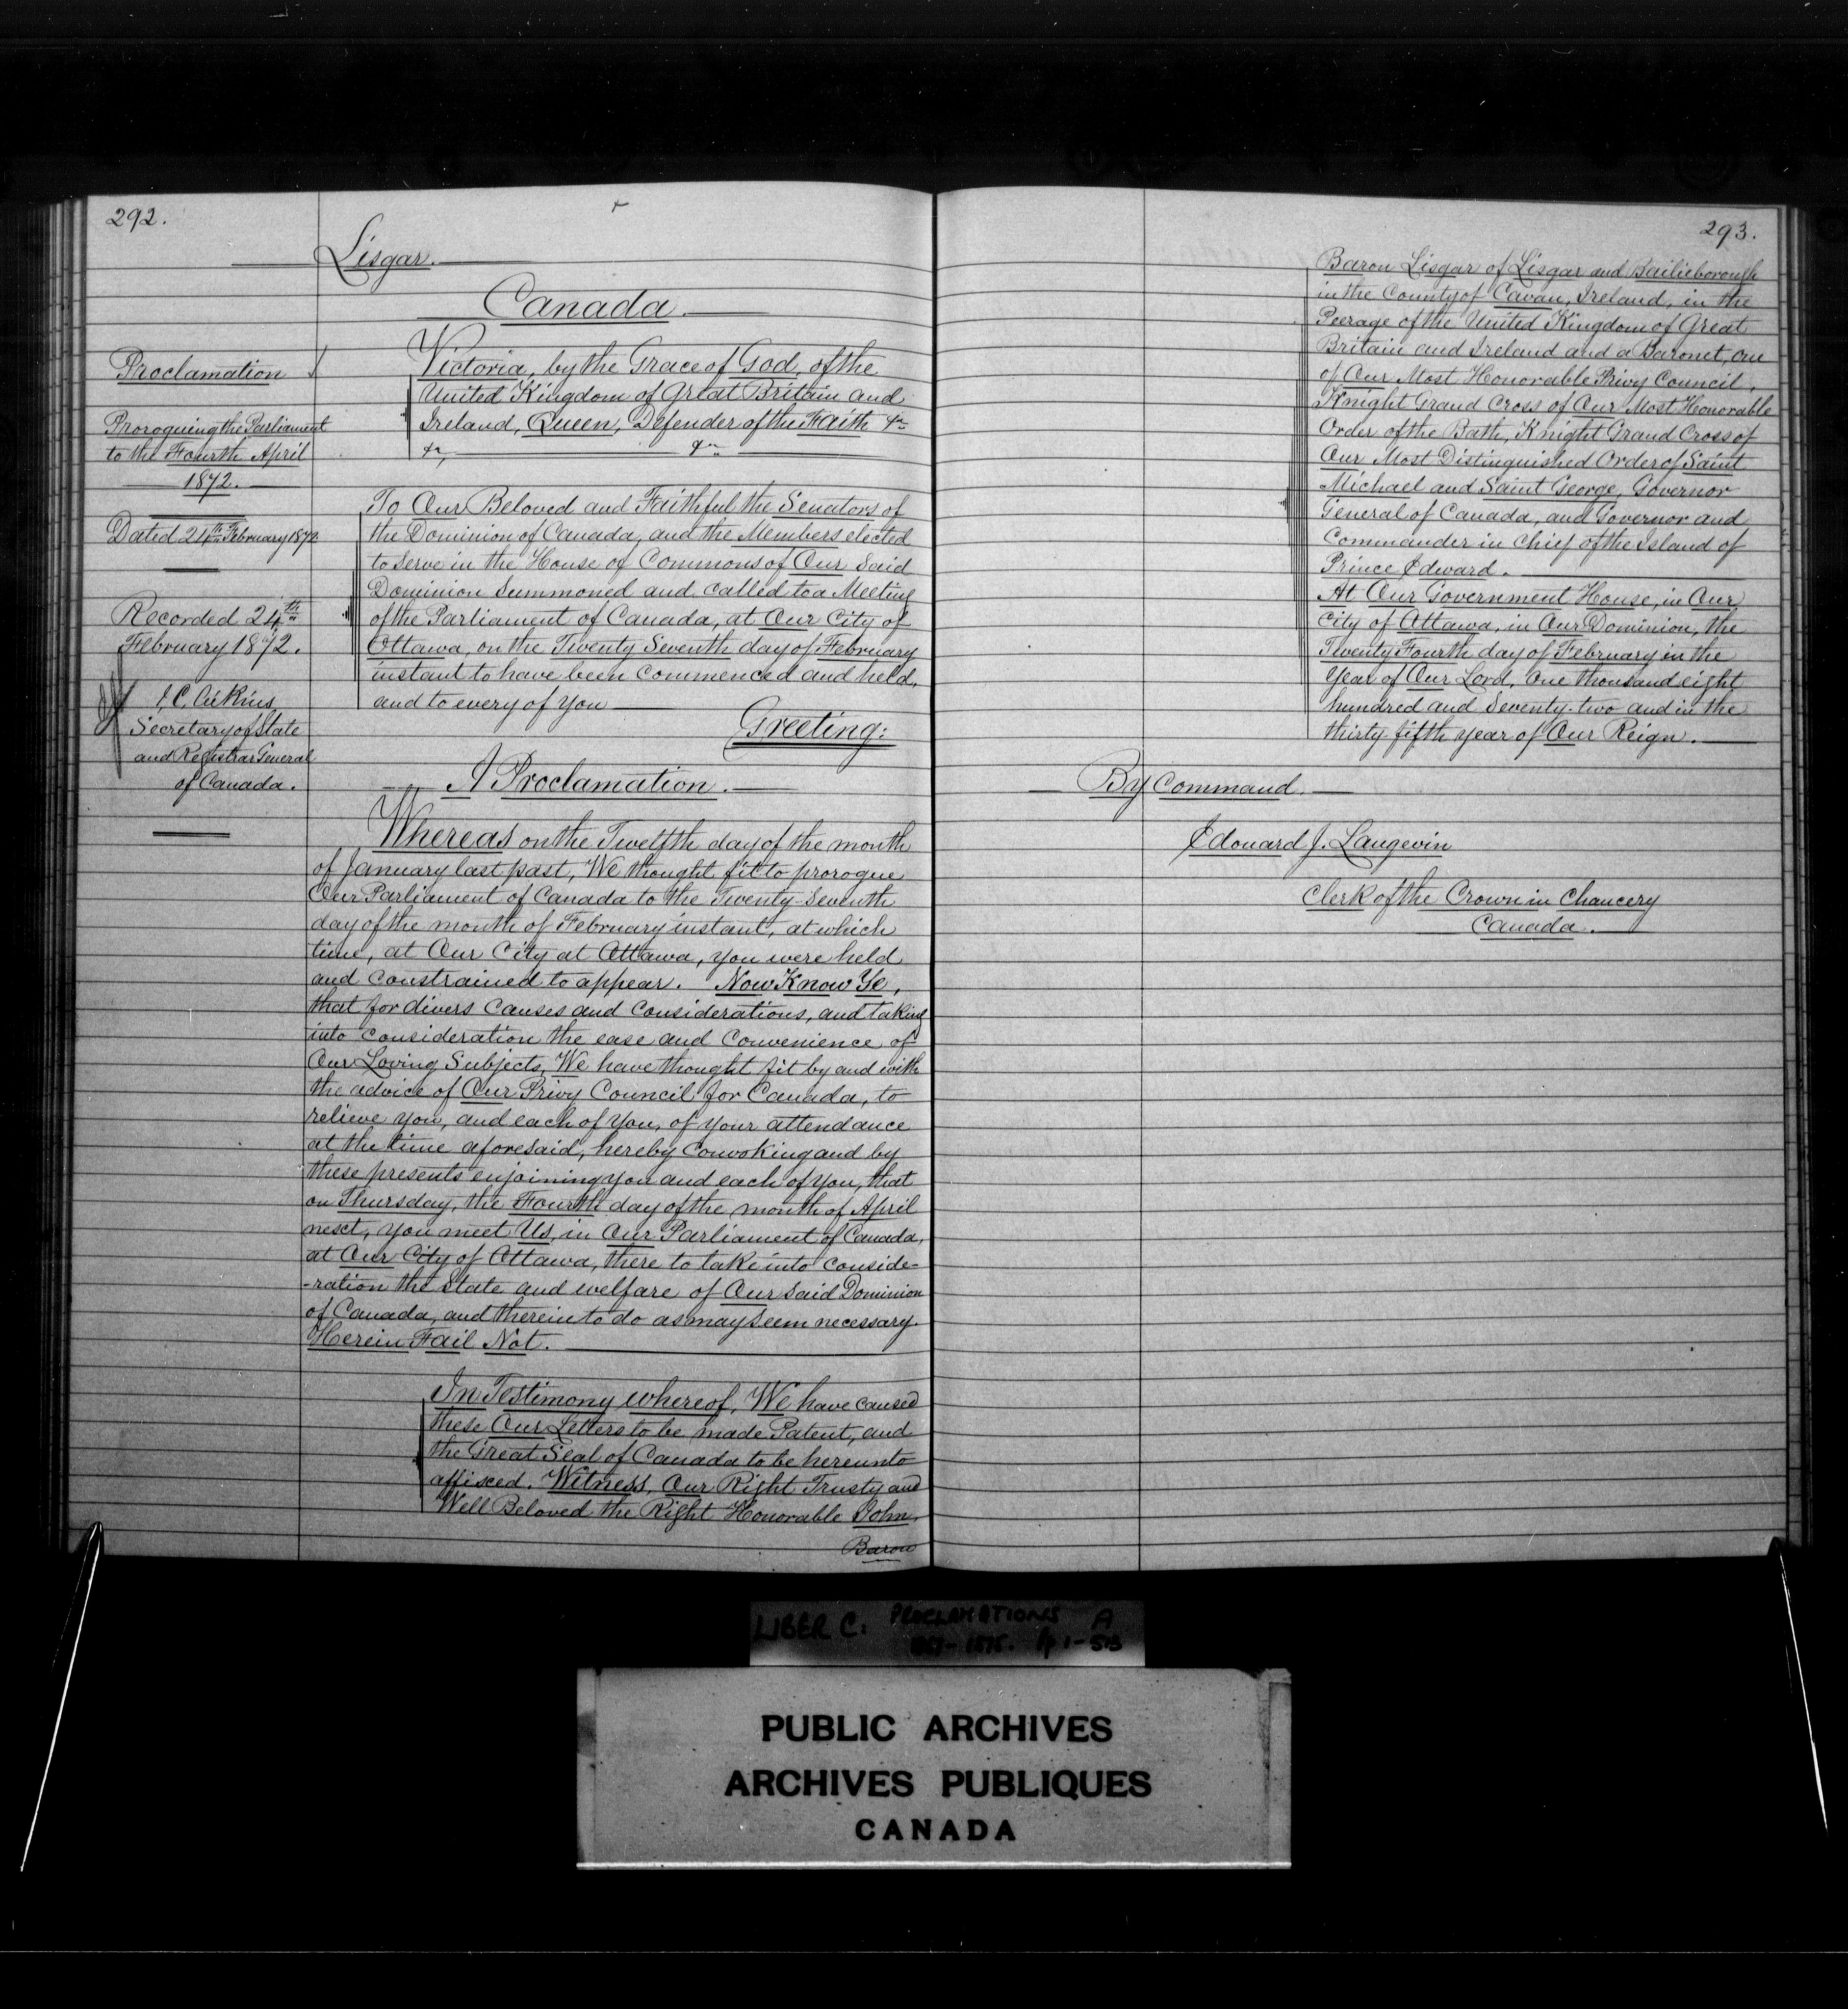 292.
Lisgar.
Canada.
Proclamation
Proroguing the Parliament
to the Fourth April
1872.
Dated 24th February 1872
Recorded 24th
February 1872.
J.C. Aikins
Secretary of State
and Registrar General
of Canada.
Victoria, by the Grace of God, of the
United Kingdom of Great Britain and
Ireland, Queen, Defender of the Faith &c
&c, &c
To Our Beloved and Faithful the Senators of
the Dominion of Canada, and the Members elected
to Serve in the House of Commons of Our Said
Dominion Summoned and called to a Meeting
of the Parliament of Canada, at Our City of
Ottawa, on the Twenty Seventh day of February
instant to have been Commenced and held,
and to every of you
Greeting:
A Proclamation.
Whereas on the Twelfth day of the month
of January last past, We thought fit to prorogue
Our Parliament of Canada to the Twenty-Seventh
day of the month of February instant, at which
time, at Our City at Ottawa, you were held
and constrained to appear. Now Know Ye,
that for divers Causes and Considerations, and taking
into consideration the ease and Convenience of
Our Loving Subjects, We have thought fit by and with
the advice of Our Privy Council for Canada, to
relieve you, and each of you, of your attendance
at the time aforesaid, hereby Convoking and by
these presents enjoining you and each of you, that
on Thursday, the Fourth day of the month of April
next, you meet Us, in Our Parliament of Canada,
at Our City of Ottawa, there to take into conside-
-ration the State and welfare of Our Said Dominion
of Canada, and therein to do as may Seem necessary.
Herein Fail Not.
In Testimony whereof, We have caused
these Our Letters to be made Patent, and
the Great Seal of Canada to be hereunto
affixed. Witness, Our Right Trusty and
Well Beloved the Right Honorable John,
Baron
293.
Baron Lisgar of Lisgar and Bailieborough
in the County of Cavan, Ireland, in the
Peerage of the United Kingdom of Great
Britain and Ireland and a Baronet, one
of Our Most Honorable Privy Council,
Knight Grand Cross of Our Most Honorable
Order of the Bath, Knight Grand Cross of
Our Most Distinguished Order of Saint
Michael and Saint George, Governor
General of Canada, and Governor and
Commander in Chief of the Island of
Prince Edward.
At Our Government House, in Our
City of Ottawa, in Our Dominion, the
Twenty Fourth day of February in the
Year of Our Lord, One thousand eight
hundred and Seventy-two and in the
thirty fifth year of Our Reign.
By Command.
Edouard J. Langevin
Clerk of the Crown in Chancery
Canada.
LIBER C. PROCLAMATIONS A
1867-1875. pp 1-513
PUBLIC ARCHIVES
ARCHIVES PUBLIQUES
CANADA